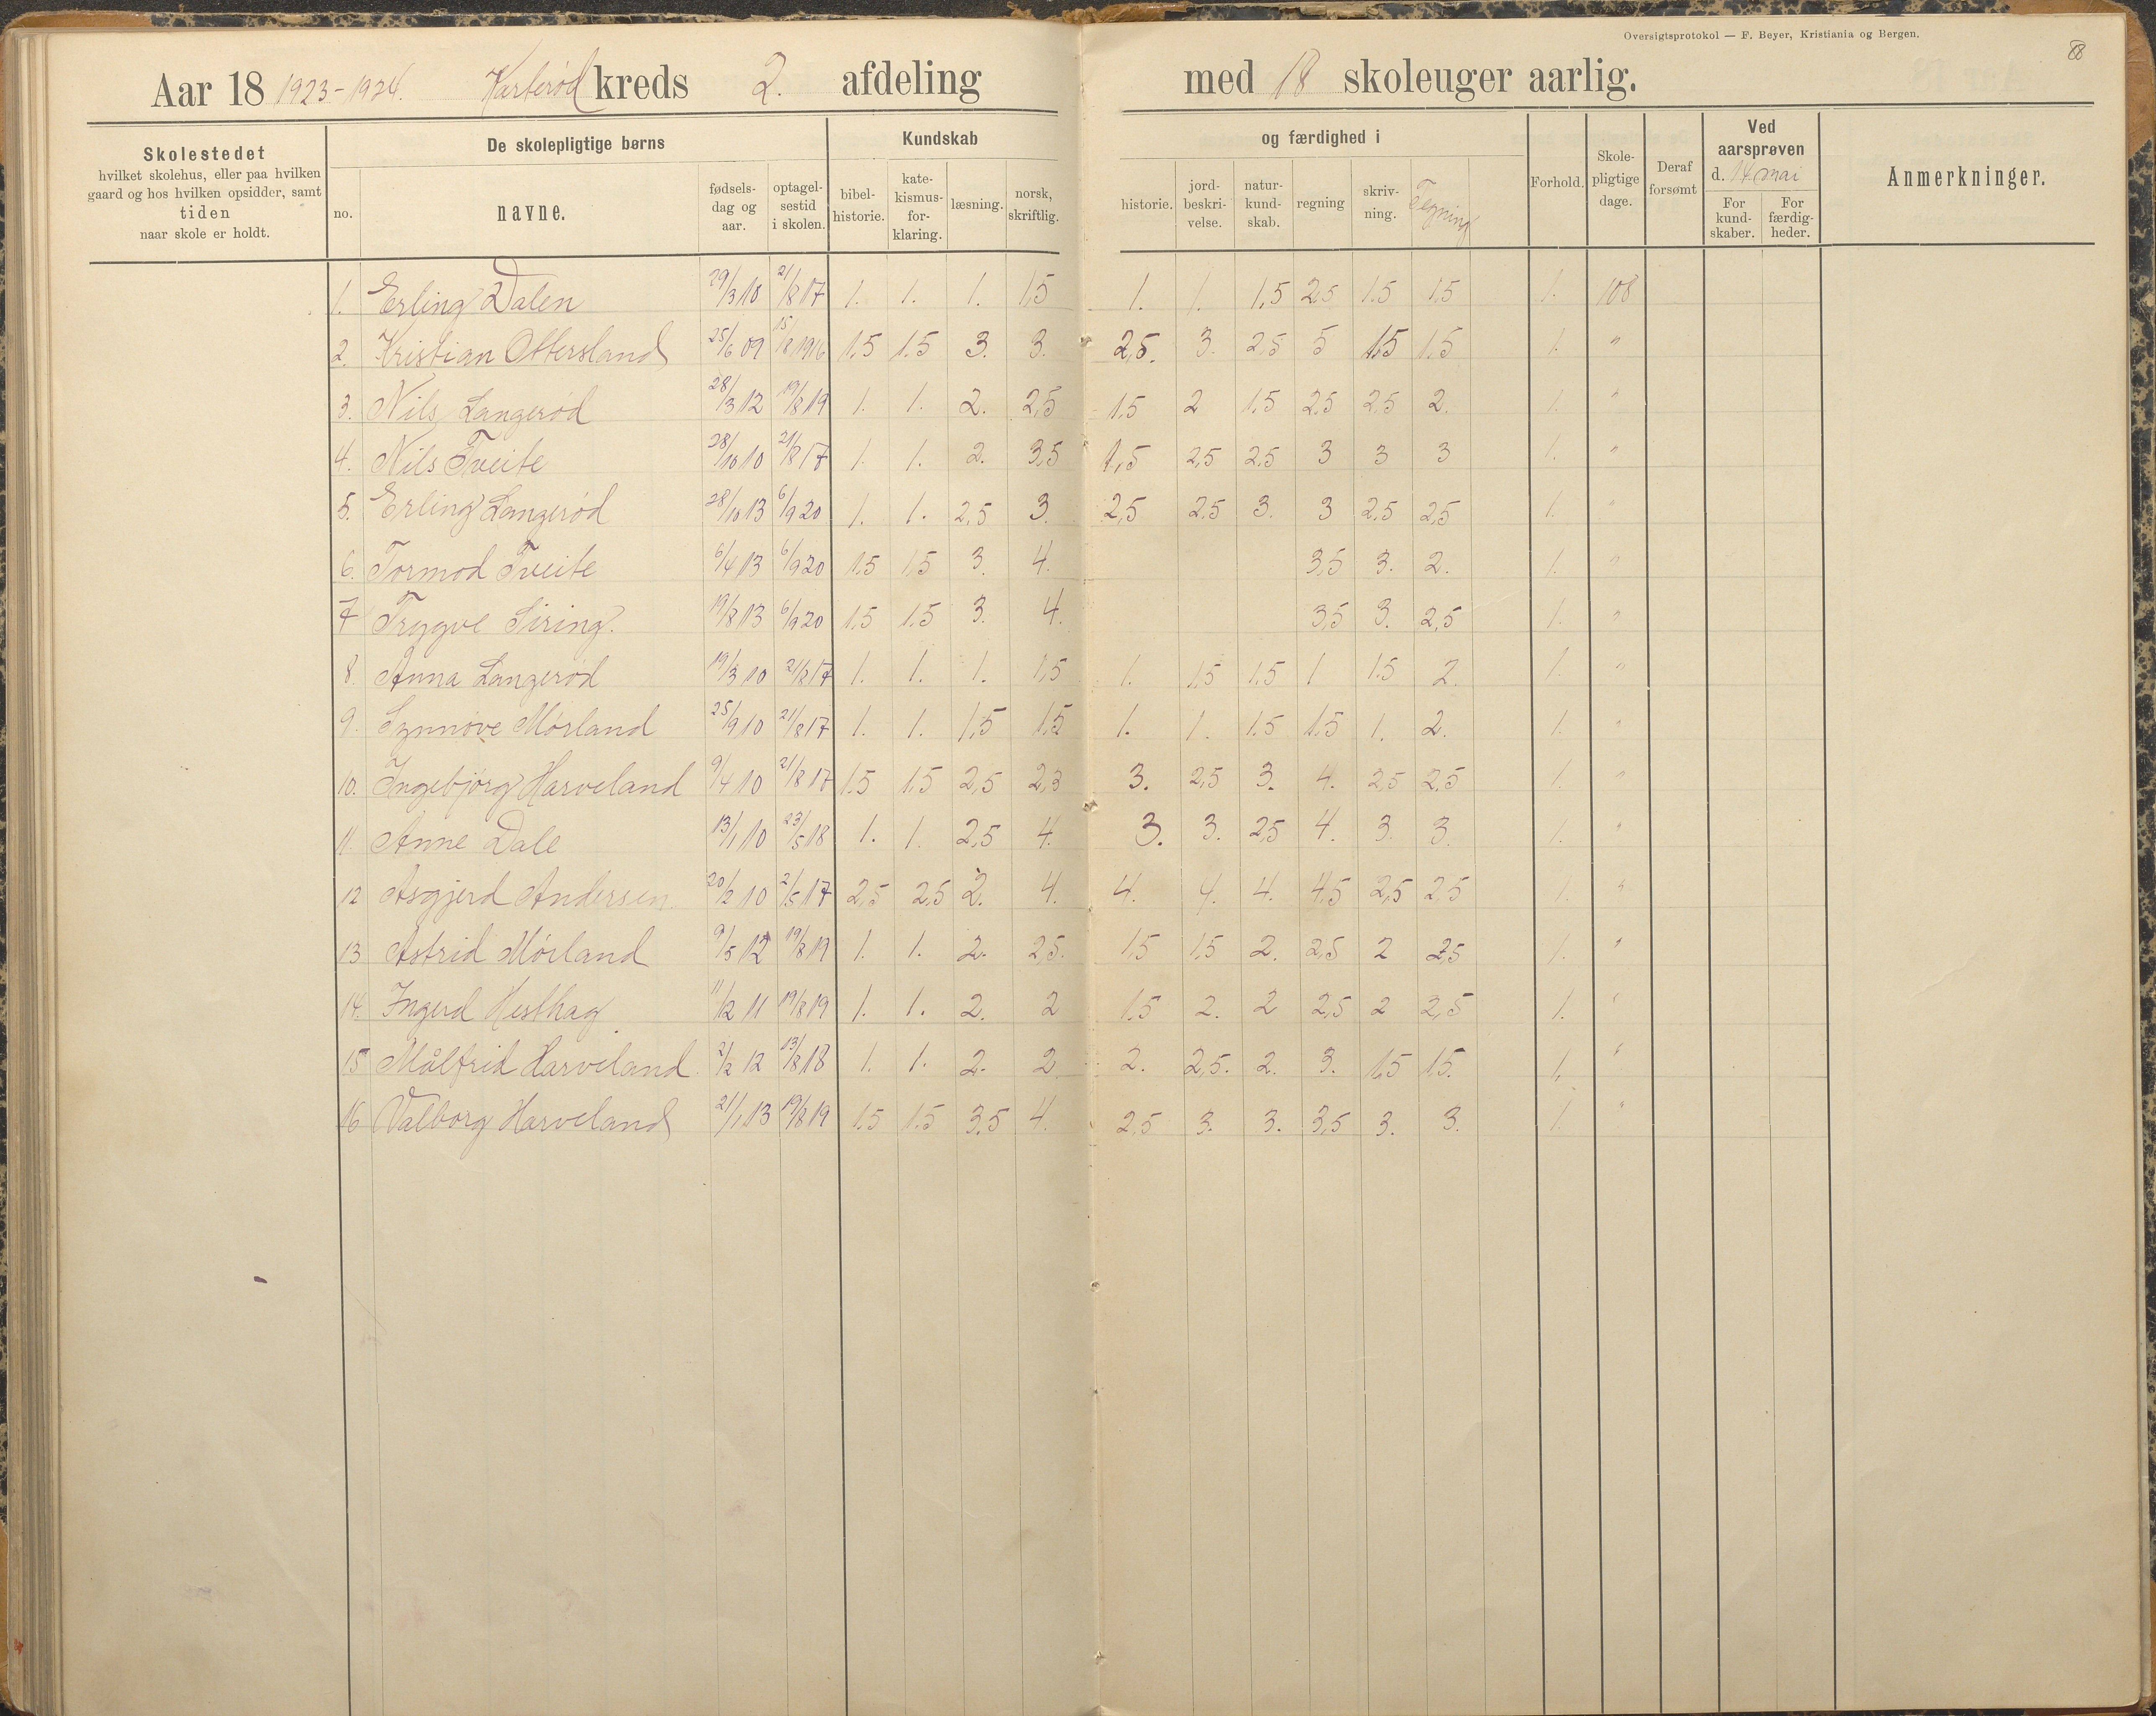 Oversigtsprotokol — F. Beyer, Kristiania og Bergen.
88
Aar 18 1923-1924. kreds 2. afdeling med 18 skoleuger aarlig.
Skolestedet
hvilket skolehus, eller paa hvilken
gaard og hos hvilken opsidder, samt
tiden
naar skole er holdt.
De skolepligtige børns
no. navne. fødsels-dag og aar. optagel-sestid i skolen.
Kundskab og færdighed i
bibel-historie. kate-kismus-for-klaring. læsning. norsk, skriftlig. historie. jord-beskri-velse. natur-kund-skab. regning skriv-ning. Tegning
Forhold. Skole-pligtige dage. Deraf forsømt
Ved aarsprøven d. 14 mai
For kund-skaber. For færdig-heder.
Anmerkninger.
1. Erling Dalen 29/3 10 21/8 17 1. 1. 1. 1,5 1. 1. 1,5 2,5 1.5 1,5 1. 108
2. Kristian Ottersland 25/6 09 15/8 1916 1,5 1.5 3. 3. 2,5. 3. 2,5 5 1,5 1.5 1. "
3. Nils Langerød 28/3 12 19/8 19 1. 1. 2. 2,5 1,5 2 1.5 2,5 2,5 2. 1. "
4. Nils Tveite 28/10 10 21/8 17 1. 1. 2. 3,5 1,5 2,5 2,5 3 3 3 1. "
5. Erling Langerød 28/10 13 6/9 20 1. 1. 2,5 3. 2,5 2,5 3. 3 2,5 2,5 1. "
6. Tormod Tveite 6/4 13 6/9 20 1.5 1,5 3. 4. 3,5 3. 2. 1. "
7 Trygve Siring. 19/8 13 6/9 20 1.5 1.5 3. 4. 3,5 3. 2,5 1. "
8. Anna Langerød 19/3 10 21/8 17 1. 1. 1. 1,5 1. 1,5 1.5 1 1.5 2. 1. "
9. Synnøve Mörland 25/9 10 21/8 17 1. 1. 1,5 1,5 1. 1. 1.5 1.5 1. 2. 1. "
10. Ingebjörg Harveland 9/4 10 21/8 17 1.5 1,5 2,5 2,3 3. 2,5 3. 4. 2,5 2,5 1. "
11. Anne Dale 13/1 10 23/5 18 1. 1. 2,5 4. 3. 3. 2,5 4. 3. 3. 1. "
12 Asgjerd Andersen 20/2 10 2/5 17 2,5 2,5 2. 4. 4. 4. 4. 4,5 2,5 2,5 1. "
13 Astrid Mörland 9/5 12 19/8 19 1. 1. 2. 2,5. 1,5 1,5 2. 2,5 2 2,5 1. "
14. Ingerd Hesthag 11/2 11 19/8 19 1. 1. 2. 2 1.5 2. 2 2,5 2 2,5 1. "
15 Målfrid Harveland 2/2 12 13/8 18 1. 1. 2. 2 2. 2,5. 2. 3. 1,5 1,5. 1. "
16 Valborg Harveland 21/1 13 19/8 19 1.5 1.5 3.5 4. 2,5 3. 3. 3,5 3. 3. 1. "